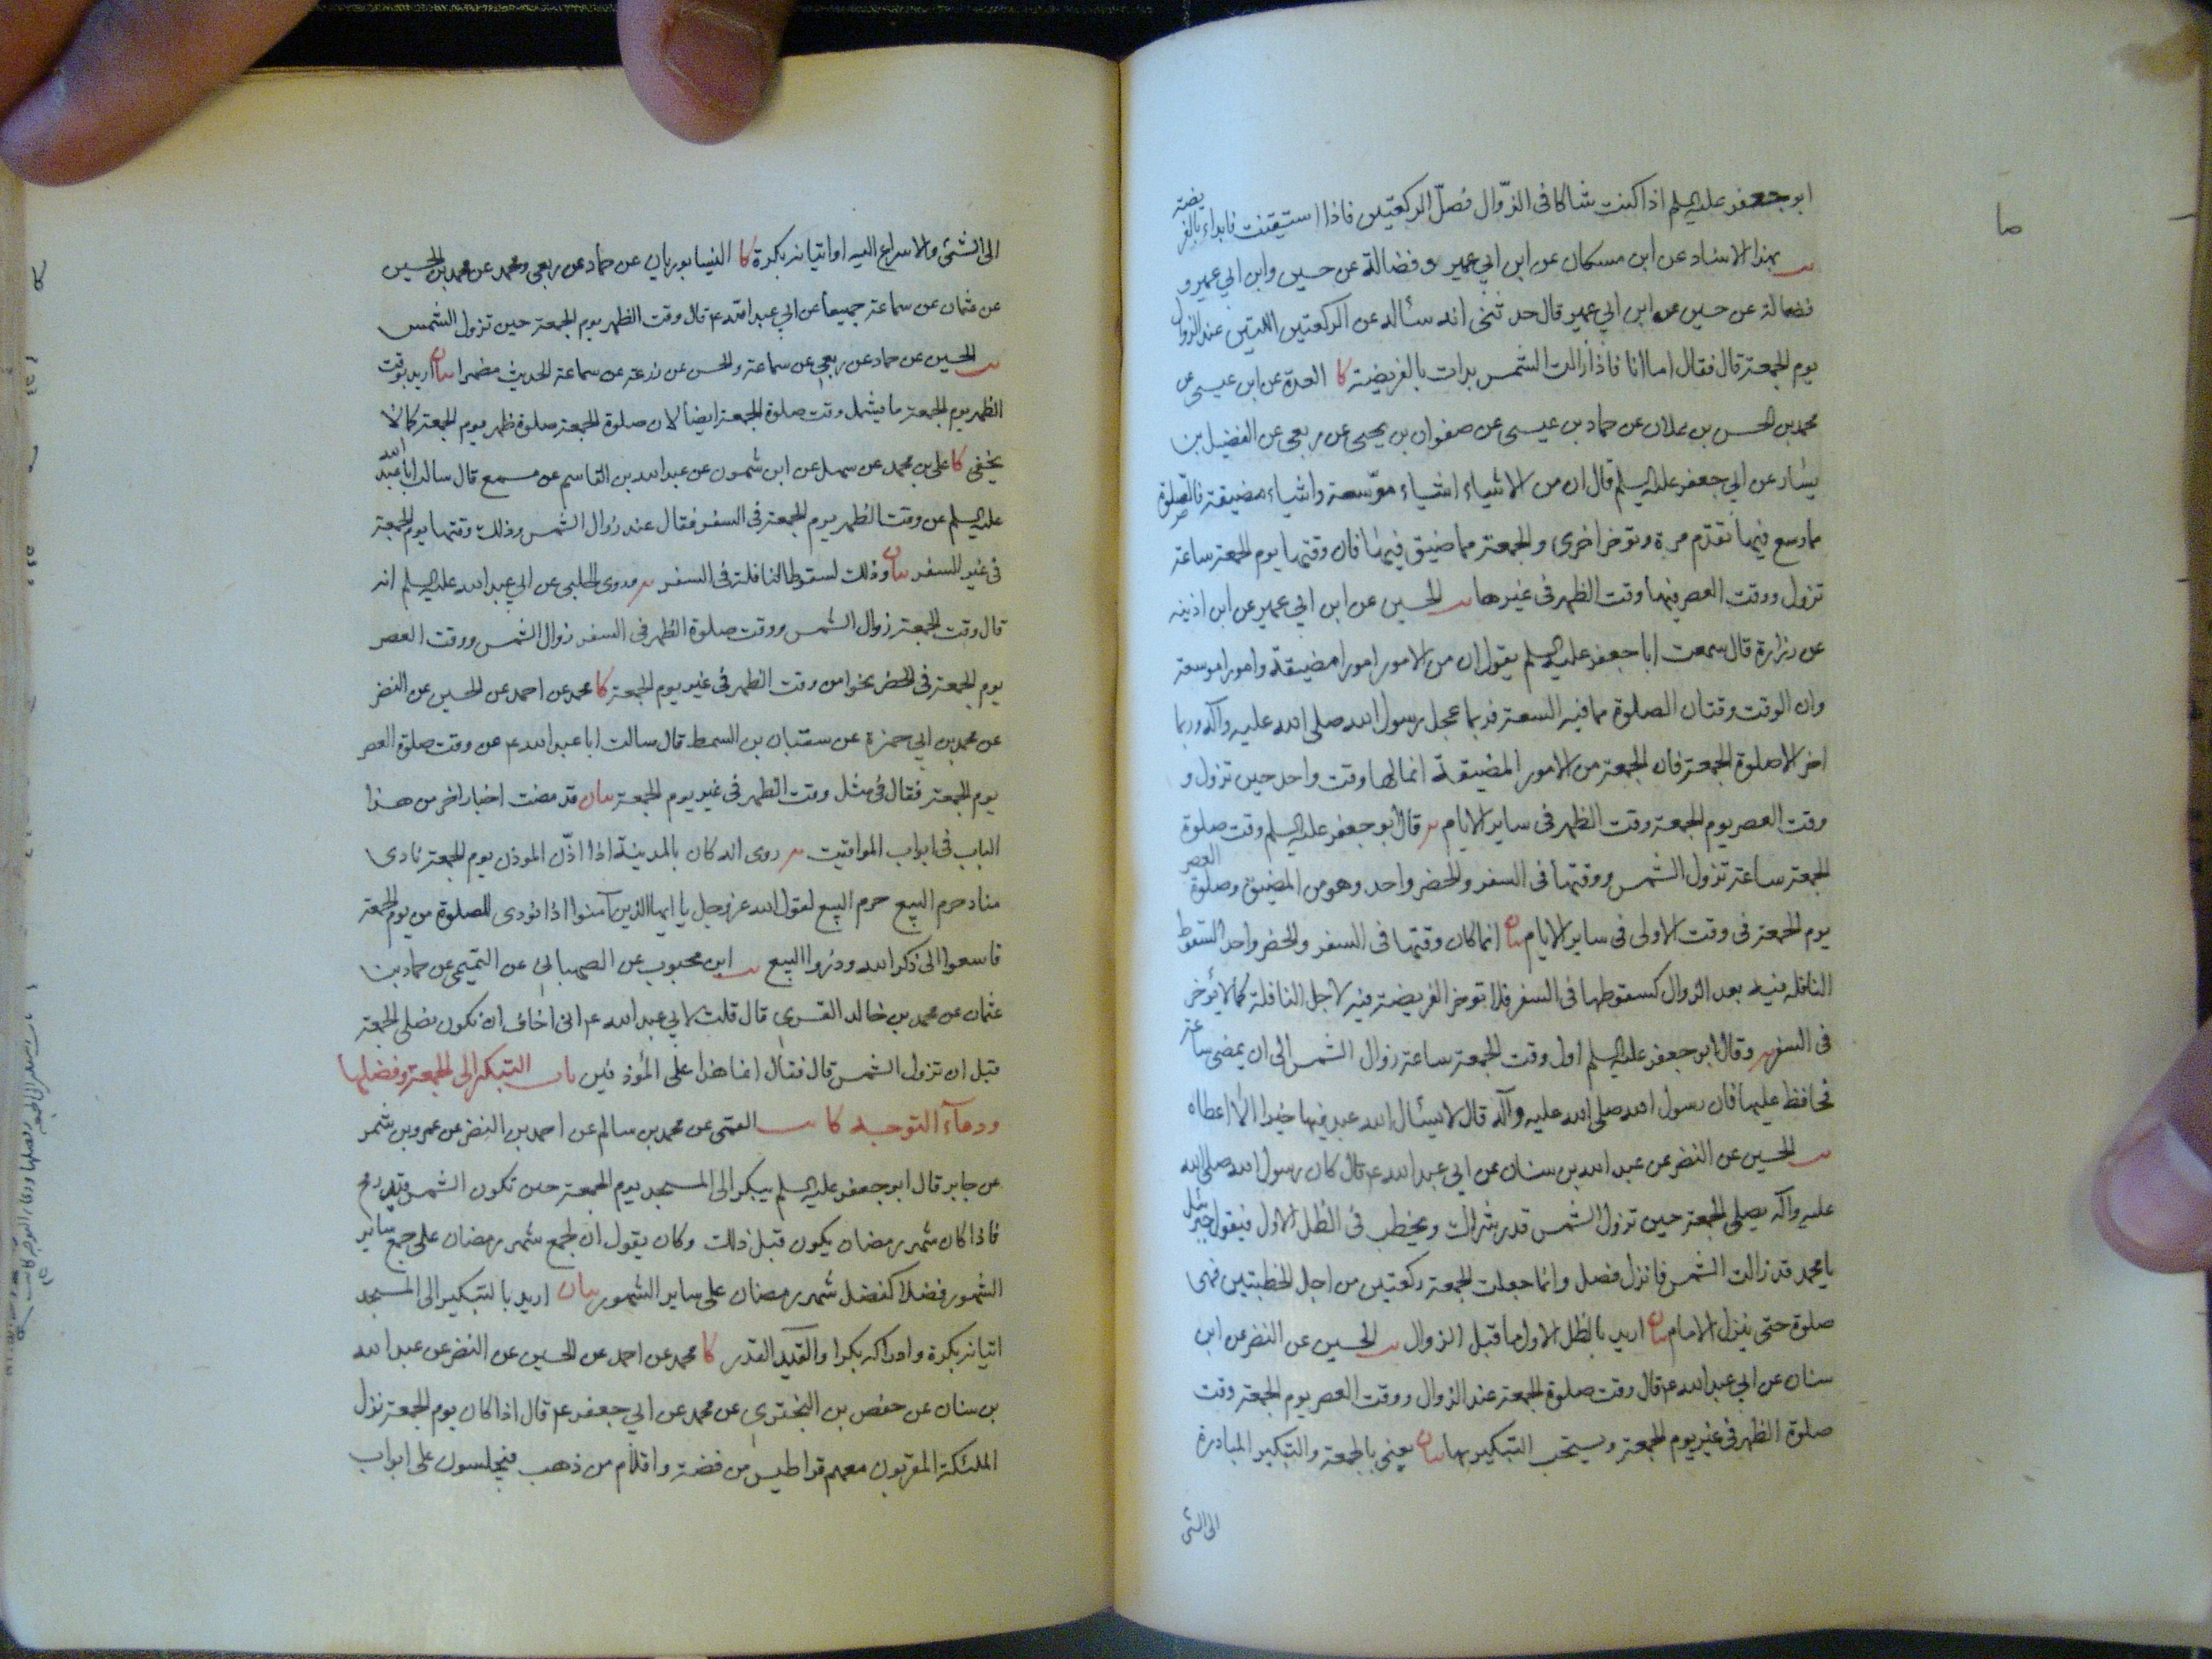 ابو جعفر عليه السلم اذا كنت شاكا فى الزّوال فصلّ الركعتين فاذا استيقنت فابداء بالفريضة
يب بهذا الاسناد عن ابن مسكان عن ابن ابي عمير و فضالة عن حسين وابن ابي عمير و
فضالة عن حسين عن ابن ابي عمير قال حدثنى انه سأله عن الركعتين اللتين عند الزوال
يوم الجمعة قال فقال اما انا فاذا زالت الشمس بدات بالفريضة كا العدة عن ابن عيسى عن
محمد بن الحسن بن علان عن حماد بن عيسى عن صفوان بن يحيى عن ربعى عن الفضيل بن
يسار عن ابي جعفر عليه السلم قال ان من الاشياء اشياء موسّعة واشياء مضيقة فالصلوة
مما وسع فيها تقدم مرة وتوخر اخرى والجمعة مما ضيق فيها فان وقتها يوم الجمعة ساعة
تزول ووقت العصر فيها وقت الظهر فى غيرها يب الحسين عن ابن ابي عمير عن ابن اذينه
عن زرارة قال سمعت ابا جعفر عليه السلم يقول ان من الامور امورا مضيقة وامورا موسعة
وان الوقت وقتان الصلوة مما فيه السعة فربما عجل رسول الله صلى الله عليه واله وربما
اخر الا صلوة الجمعة فان الجمعة من الامور المضيقة انما لها وقت واحد حين تزول و
وقت العصر يوم الجمعة وقت الظهر فى ساير الايام يه قال ابو جعفر عليه السلم وقت صلوة
الجمعة ساعة تزول الشمس ووقتها فى السفر والحضر واحد وهو من المضيق وصلوة العصر
يوم الجمعة فى وقت الاولى فى ساير الايام بيان انما كان وقتها فى السفر والحضر واحد السقوط
النافله فيه بعد الزوال كسقوطها فى السفر فلا توخر الفريضة فيه لاجل النافلة كما لا يؤخر
فى السفر يه وقال ابو جعفر عليه السلم اول وقت الجمعة ساعة زوال الشمس الى ان يمضى ساعة
فحافظ عليها فان رسول الله صلى الله عليه وآله قال لا يسأل الله عبد فيها خيرا الا اعطاه
يب الحسين عن النضر عن عبد الله بن سنان عن ابى عبد الله ع قال كان رسول الله صلى الله
عليه واله يصلى الجمعة حين تزول الشمس قدر شراك ويخطب فى الظل الاول فيقول جبرئيل
يا محمد قد زالت الشمس فانزل فصل وانما جعلت الجمعة ركعتين من اجل الخطبتين فهى
صلوة حتى ينزل الامام بيان اريد بالظل الاول ما قبل الزوال يب الحسين عن النضر عن ابن
سنان عن ابي عبد الله ع قال وقت صلوة الجمعة عند الزوال ووقت العصر يوم الجمعة وقت
صلوة الظهر فى غير يوم الجمعة ويستحب التبكير بها بيان يعنى بالجمعة والتبكير المبادرة
الى الشئ
الى الشئ والاسراع اليه او اتيانه بكرة كا النيسابوريان عن حماد عن ربعى ومحمد عن محمد بن الحسين
عن عثمان عن سماعة جميعا عن ابي عبد الله ع قال وقت الظهر يوم الجمعة حين تزول الشمس
يب الحسين عن حماد عن ربعى عن سماعة والحسن عن زرعة عن سماعة الحديث مضمرا بيان اريد بوقت
الظهر يوم الجمعة ما يشمل وقت صلوة الجمعة ايضا لان صلوة الجمعة صلوة ظهر يوم الجمعة كما لا
يخفى كا على بن محمد عن سهل عن ابن شمون عن عبد الله بن القاسم عن مسمع قال سالت ابا عبد الله
عليه السلم عن وقت الظهر يوم الجمعة فى السفر فقال عند زوال الشمس وذلك وقتها يوم الجمعة
فى غير السفر بيان وذلك لسقوط النافلة فى السفر يه وروى الحلبى عن ابي عبد الله عليه السلم انه
قال وقت الجمعة زوال الشمس ووقت صلوة الظهر فى السفر زوال الشمس ووقت العصر
يوم الجمعة فى الحضر نحوا من وقت الظهر فى غير يوم الجمعة كا محمد عن احمد عن الحسين عن النضر
عن محمد بن ابي حمزة عن سفيان بن السمط قال سالت ابا عبد الله ع عن وقت صلوة العصر
يوم الجمعة فقال فى مثل وقت الظهر فى غير يوم الجمعة بيان قد مضت اخبار اخر من هذا
الباب فى ابواب المواقيت يه روى انه كان بالمدينة اذا اذّن الموذن يوم الجمعة نادى
مناد حرم البيع حرم البيع لقول الله عز وجل يا ايها الذين آمنوا اذا نودى للصلوة من يوم الجمعة
فاسعوا الى ذكر الله وذروا البيع يب ابن محبوب عن الصهبانى عن التميمى عن حماد بن
عثمان عن محمد بن خالد القسرى قال قلت لابي عبد الله ع انى اخاف ان نكون نصلى الجمعة
قبل ان تزول الشمس قال فقال انما هذا على المؤذنين باب التبكير الى الجمعة وفضلها
ودعآء التوجه كا يب القمى عن محمد بن سالم عن احمد بن النضر عن عمرو بن شمر
عن جابر قال ابو جعفر عليه السلم يبكر الى المسجد يوم الجمعة حين تكون الشمس قيد رمح
فاذا كان شهر رمضان يكون قبل ذلك وكان يقول ان لجمع شهر رمضان على جمع ساير
الشهور فضلا كفضل شهر رمضان على ساير الشهور بيان اريد بالتبكير الى المسجد
اتيانه بكرة وادراكه بكرا والقيد القدر كا محمد عن احمد عن الحسين عن النضر عن عبد الله
بن سنان عن حفص بن البخترى عن محمد عن ابي جعفر ع قال اذا كان يوم الجمعة نزل
الملئكة المقربون معهم قراطيس من فضة واقلام من ذهب فيجلسون على ابواب